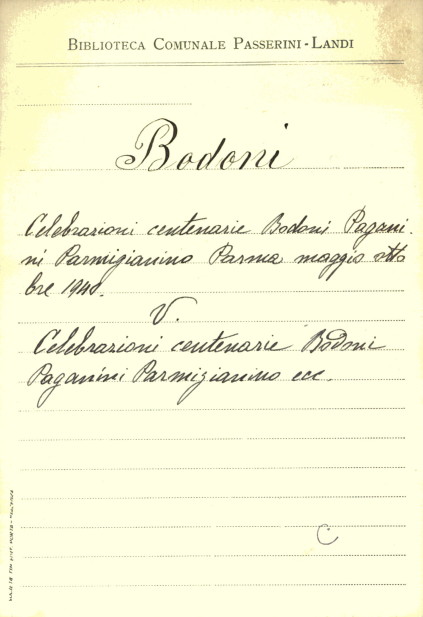 BIBLIOTECA COMUNALE PASSERINI-LANDI
Bodoni
Celebrazioni centenarie Bodoni Pagani-
ni Parmigianino Parma maggio otto
bre 1940.
V.
Celebrazioni centenarie Bodoni
Paganini Parmigianino ecc.
C